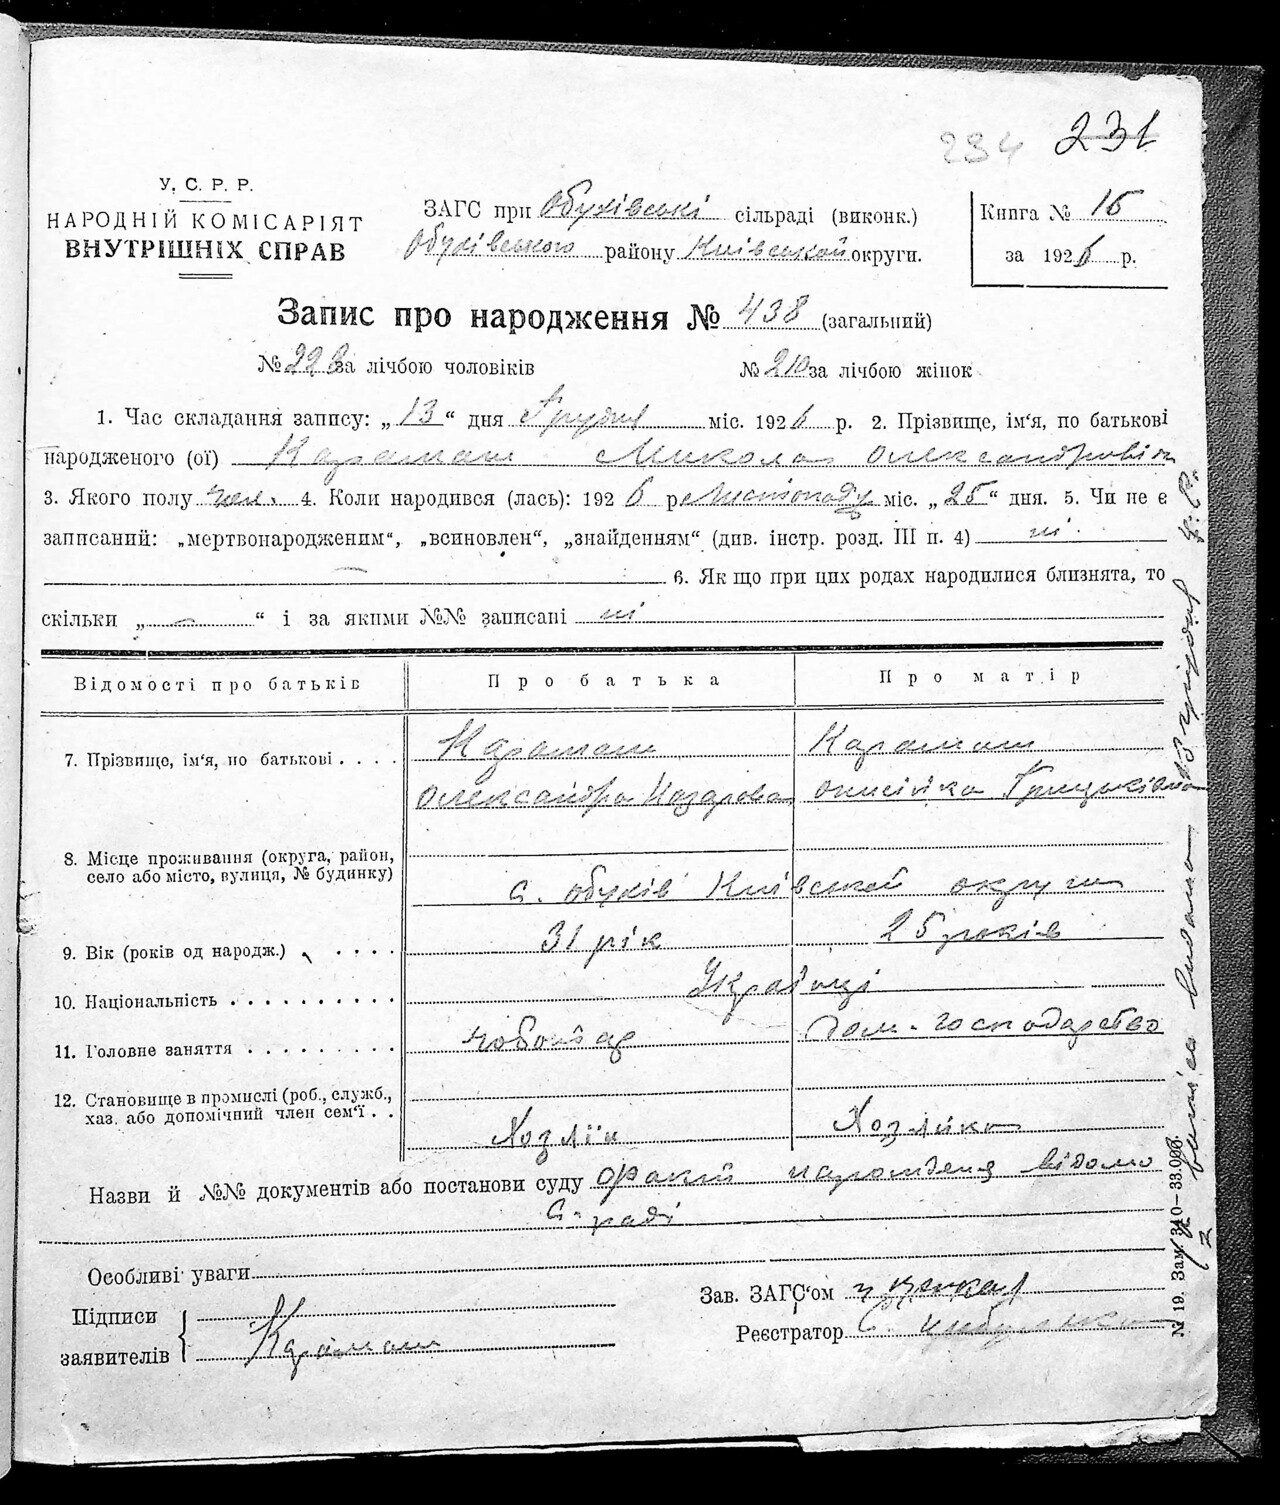 234 231
У. С. Р. Р.
НАРОДНІЙ КОМІСАРІЯТ
ВНУТРІШНІХ СПРАВ
ЗАГС при Обухівські сільраді (виконк.)
Обухівського району Київської округи.
Книга № 16
за 1926 р.
Запис про народження № 438 (загальний)
№ 228 за лічбою чоловіків № 210 за лічбою жінок
1. Час складання запису: „ 13 “ дня Грудня міс. 1926 р. 2. Прізвище, ім‘я, по батькові
народженого (ої) Карамаш Микола Олександрович
3. Якого полу чол. 4. Коли народився (лась): 1926 р. Листопаду міс. „ 25 “ дня. 5. Чи не є
записаний: „мертвонародженим“, „всиновлен“, „знайденням“ (див. інстр. розд. III п. 4) ні.
6. Як що при цих родах народилися близнята, то
скільки „ — “ і за якими №№ записані ні
Відомості про батьків Про батька Про матір
7. Прізвище, ім‘я, по батькові . . . . Карамаш Карамаш
Олександра Назарова Онисійка Грицьківна
8. Місце проживання (округа, район,
село або місто, вулиця, № будинку)
с. Обухів Київської округи
9. Вік (років од народж.) . . . . 31 рік 25 років
10. Національність . . . . . . . . . . Українці
11. Головне заняття . . . . . . . . . чоботар Дом. господарство
12. Становище в промислі (роб., служб.,
хаз. або допомічний член сем‘ї . .
Хозяїн Хозяйка
Назви й №№ документів або постанови суду Факт народженя відомо
С-раді
Особливі уваги
Підписи
заявителів
Карамаш
Зав. ЗАГС‘ом
Реєстратор С.
№ 19. Зам. 310—33.000.
видано 13 грудня